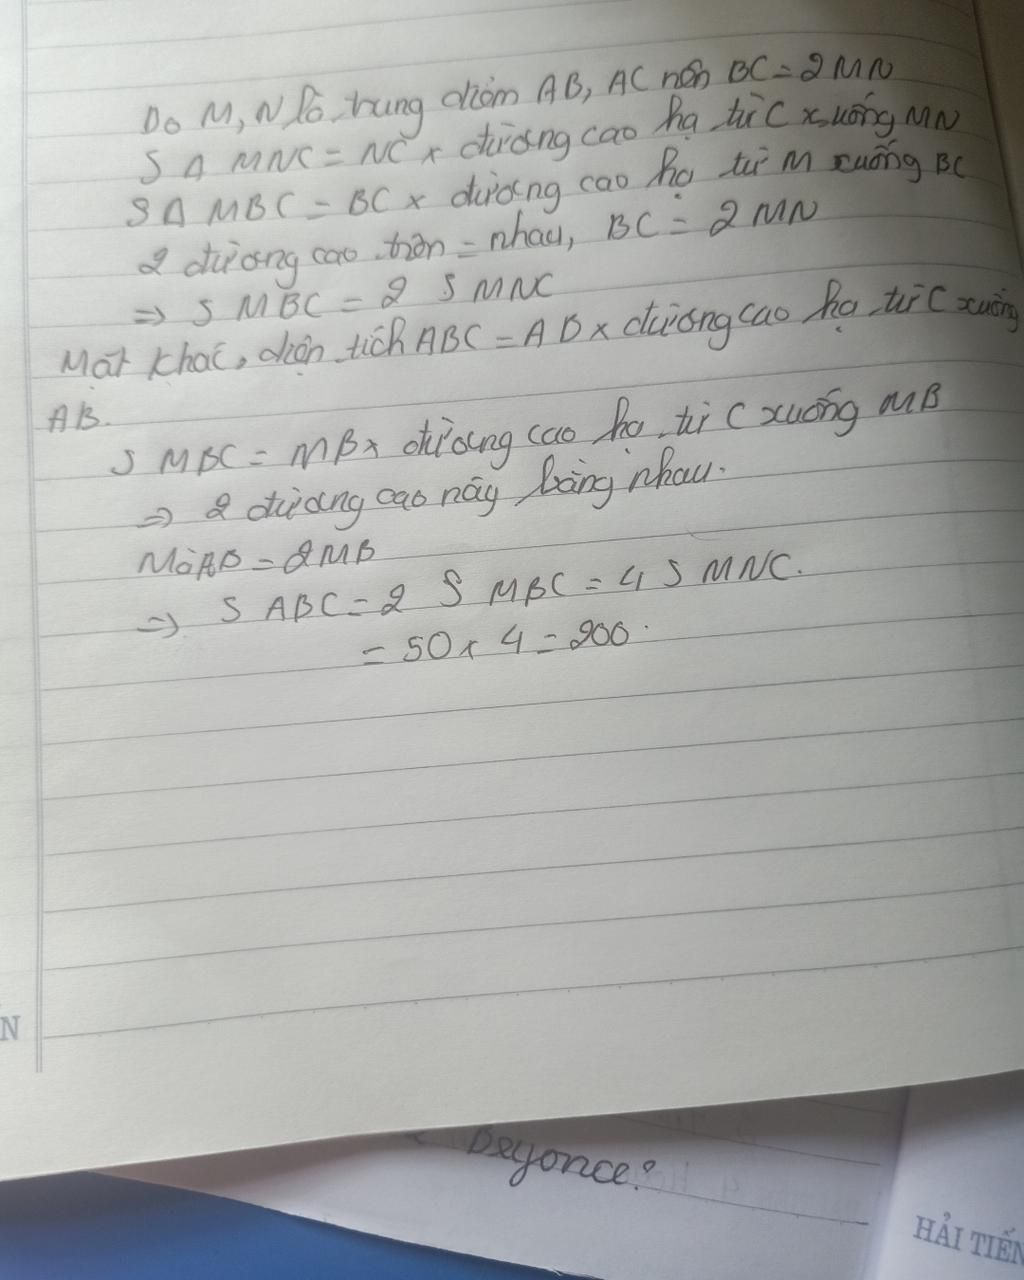 Do M, N là trung điểm AB, AC nên BC = 2MN
S Δ MNC = NC x đường cao hạ từ C xuống MN
S Δ MBC = BC x đường cao hạ từ M xuống BC
2 đường cao trên = nhau, BC = 2 MN
=> S MBC = 2 S MNC
Mặt khác, diện tích ABC = AB x đường cao hạ từ C xuống
AB.
S MBC = MB x đường cao hạ từ C xuống MB
=> 2 đường cao này bằng nhau.
Mà AB = 2MB
=> S ABC = 2 S MBC = 4 S MNC.
= 50 x 4 = 200.
N
Beyonce?
HẢI TIẾN